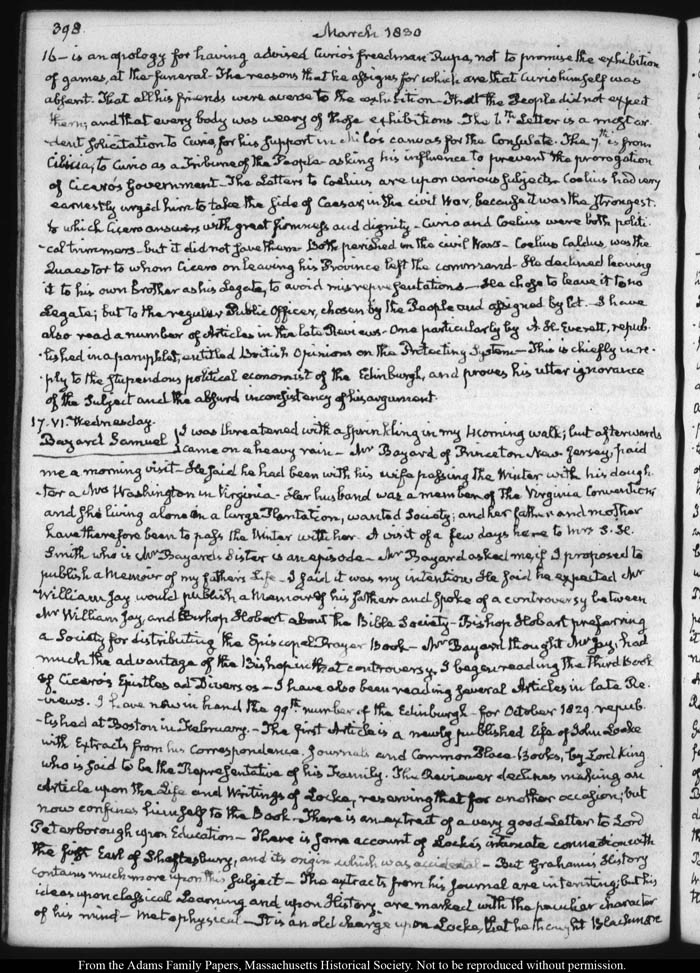 398.
March 1830
16 – is an apology for having advised Curio's freedman Rupa, not to promise the exhibition
of games, at the funeral – The reasons that he assigns for which are that Curio himself was
absent. That all his friends were averse to the exhibition – That the People did not expect
them; and that every body was weary of those exhibitions. The 6th. Letter is a most ar-
-dent solicitation to Curio, for his support in Milo's canvas for the Consulate. The 7th. is from
Cilicia, to Curio as a Tribune of the People asking his influence to prevent the prorogation
of Cicero's Government – The Letters to Coelius are upon various subjects – Coelius had very
earnestly urged him to take the side of Caesar, in the civil War, because it was the strongest.
to which Cicero answers with great firmness and dignity – Curio and Coelius were both politi-
-cal trimmers – but it did not save them – Both perished in the civil Wars – Coelius Caldus, was the
Quaestor to whom Cicero on leaving his Province left the command – He declined leaving
it to his own brother as his Legate, to avoid misrepresentations – He chose to leave it to no
Legate; but to the regular Public Officer, chosen by the People and assigned by lot. – I have
also read a number of Articles in the late Reviews – One particularly by A. H. Everett, repub-
-lished in a pamphlet, entitled British Opinions on the Protecting System – This is chiefly in re-
-ply to the stupendous political economist of the Edinburgh, and proves his utter ignorance
of the subject and the absurd inconsistency of his argument.
17. VI. Wednesday.
Bayard Samuel
I was threatened with a sprinkling in my morning walk; but afterwards
came on a heavy rain – Mr Bayard of Princeton New-Jersey, paid
me a morning visit – He said he had been with his wife passing the Winter with his daugh-
-ter a Mrs Washington in Virginia – Her husband was a member of the Virginia Convention
and she living alone on a large Plantation, wanted Society; and her father and mother
have therefore been to pass the Winter with her – A visit of a few days here to Mrs S. H.
Smith who is Mr Bayard's Sister is an episode – Mr Bayard asked me, if I proposed to
publish a Memoir of my father's Life – I said it was my intention. He said he expected Mr
William Jay would publish a Memoir of his father and spoke of a controversy between
Mr William Jay, and Bishop Hobart about the Bible Society – Bishop Hobart preferring
a Society for distributing the Episcopal Prayer Book – Mr Bayard thought Mr Jay, had
much the advantage of the Bishop in that controversy. I began reading the third book
of Cicero's Epistles ad Diversos – I have also been reading several Articles in late Re-
-views. I have now in hand the 99th. number of the Edinburgh – for October 1829. repub-
-lished at Boston in February. – The first Article is a newly published life of John Locke
with Extracts from his Correspondence, Journals and Common Place-Books, by Lord King
who is said to be the Representative of his Family. The Reviewer declines making an
Article upon the Life and Writings of Locke, reserving that for another occasion; but
now confines himself to the Book – There is an extract of a very good Letter to Lord
Peterborough upon Education – There is some account of Locke's intimate connection with
the first Earl of Shaftesbury, and its origin which was accidental – But Graham's History
contains much more upon this subject – The extracts from his Journal are interesting; but his
ideas upon classical Learning and upon History, are marked with the peculiar character
of his mind – metaphysical – It is an old charge upon Locke, that he thought Blackmore
From the Adams Family Papers, Massachusetts Historical Society. Not to be reproduced without permission.